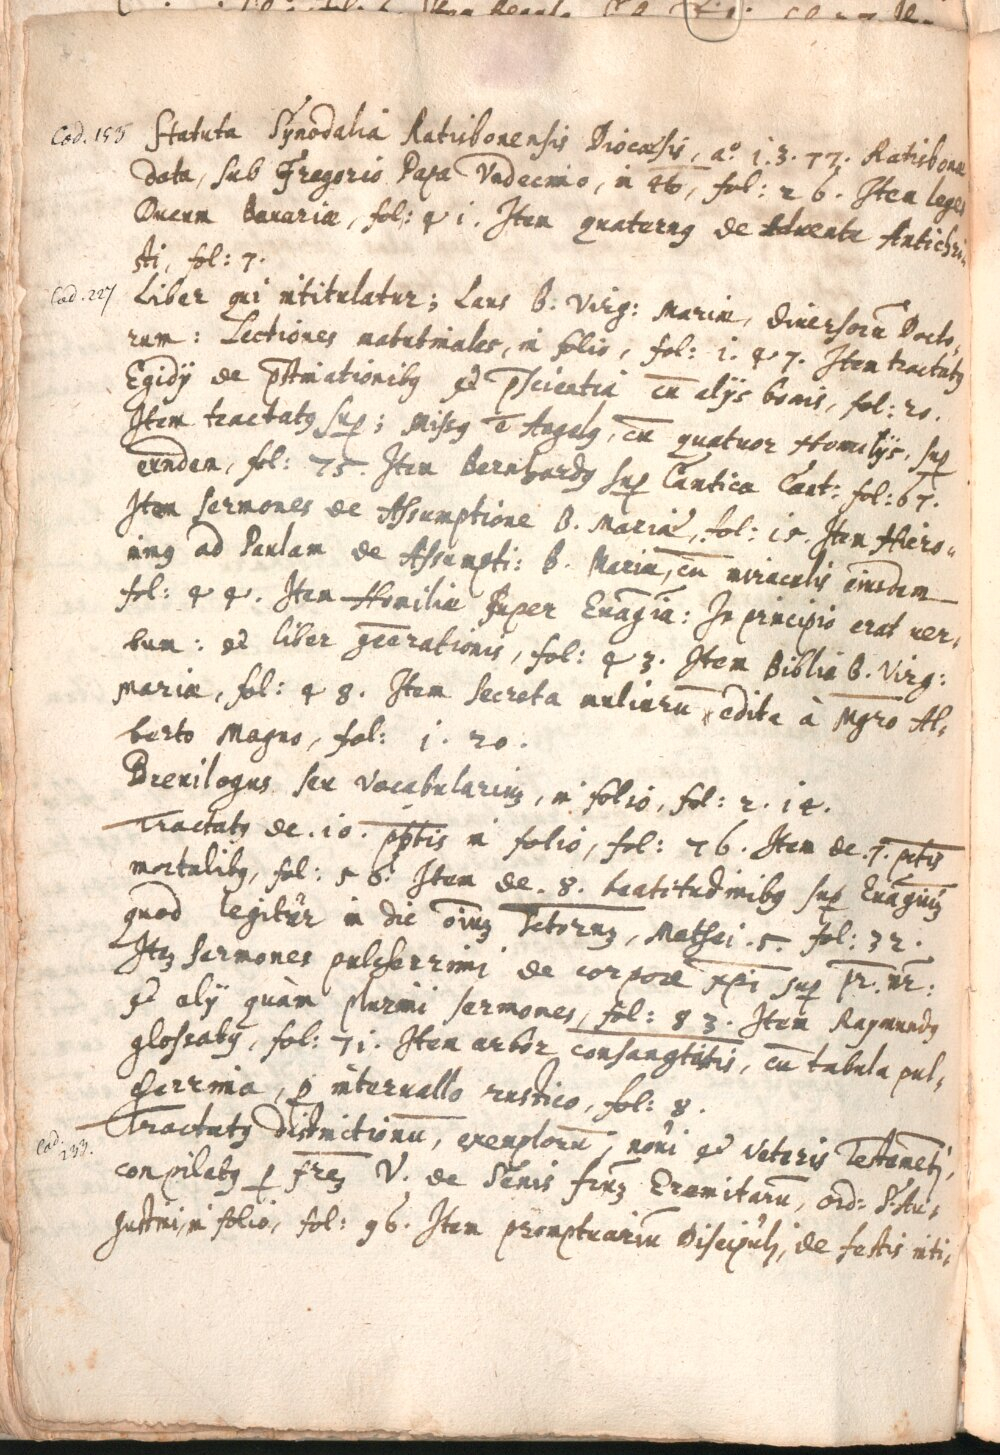 Cod. 155 Statuta Synodalia Ratisbonensis Diocæsis, a.º 1.3.77. Ratisbonæ
data, sub Gregorio Papa Vndecimo, in 4to, fol: 26. Item leges
Ducum Bauariæ, fol: 41. Item quaterng de Aduentu Antichri-
sti, fol: 7.
Cod. 227 Liber qui intitulatur; Laus B. Virg: Mariæ, diuersorū Docto-
rum: Lectiones matutinales, in folio, fol: 1.47. Item tractatg
Egidÿ de pstinationibg et pscientia cū alÿs bonis, fol: 20.
Item tractatg sup; Missg ē Angelg, cū quatuor Homilÿs, sup
eundem, fol: 75. Item Bernhardg sup Cantica Cant: fol: 67.
Item sermones de Assumptione B. Mariæ, fol: 15. Item Hiero-
nimg ad Paulam de Assumpti: B. Mariæ, cū miraculis eiusdem
fol: 44. Item Homiliæ super Euāgīa: In principio erat ver-
bum: et liber gēerationis, fol: 43. Item Biblia B. Virg:
Mariæ, fol: 48. Item secreta mulierū edita à Mgro Al-
berto Magno, fol: 1.20.
Breuilogus seu Vocabulariuz, in folio, fol: 2.14.
Tractatg de .10. pptis in folio, fol: 76. Item de .7. pctis
mortalibg, fol: 56. Item de .8. beatitudinibg sup Euāgliuz
quod legitur in die oiuz Sctoruz, Mathei .5. fol: 32.
Itez sermones pulcherrimi de corpore xpi sup pr. nr:
et alÿ quàm plurimi sermones, fol: 83. Item Raymundg
glossatg, fol: 71. Item arbor consangtitis, cū tabula pul-
cherrima, p interuallo rustico, fol: 8.
Cod. 233. Tractatg distinctionū, exemplorū, noui et veteris Testameti,
conpilatg p frez V. de Senis frūz Eremitarū, ord: S. Au-
gustini, in folio, fol: 96. Item promptuariū Discipulj, de festis inti-